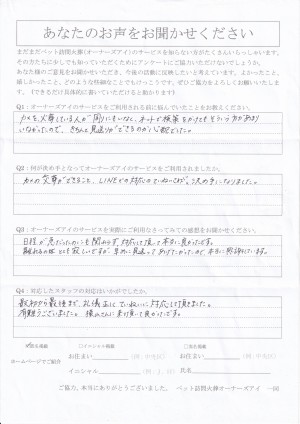 あなたのお声をお聞かせください
まだまだペット訪問火葬(オーナーズアイ)のサービスを知らない方がたくさんいらっしゃいます。
その方たちに少しでも知っていただくためにアンケートにご協力いただけないでしょうか。
あなた様のご意見をお聞かせいただき、今後の活動に反映したいと考えています。よかったこと、
嬉しかったこと、どのような些細なことでもけっこうです。ぜひご協力をよろしくお願いいたし
ます。(できるだけ具体的に書いていただけると助かります)
Q1:オーナーズアイのサービスをご利用される前に悩んでいたことをお教えください。
カメを火葬している人が周りにもいなく、ネットで検索をかけてもそういう方があまり
いなかったので、きちんと見送りができるのか心配でした。
Q2:何が決め手となってオーナーズアイのサービスをご利用されましたか。
カメの火葬ができること、LINEでの対応のていねいさが決め手になりました。
Q3:オーナーズアイのサービスを実際にご利用なさってみての感想をお聞かせください
日程が急だったのにも関わらず、対応して頂いて本当に良かったです。
離れるのはとても寂しいですが、早めに見送ってあげたかったので本当に感謝しています。
Q4:対応したスタッフの対応はいかがでしたか。
最初から最後まで、礼儀正しくていねいに対応して頂けました。
有難うございました。 さんに来て頂いて良かったです。
匿名掲載 □イニシャル掲載 □実名掲載
ホームページでご紹介
お住まい (例:中央区) お住まい (例:中央区)
イニシャル (例:J.M) 氏名
ご協力、本当にありがとうございました。 ペット訪問火葬オーナーズアイ